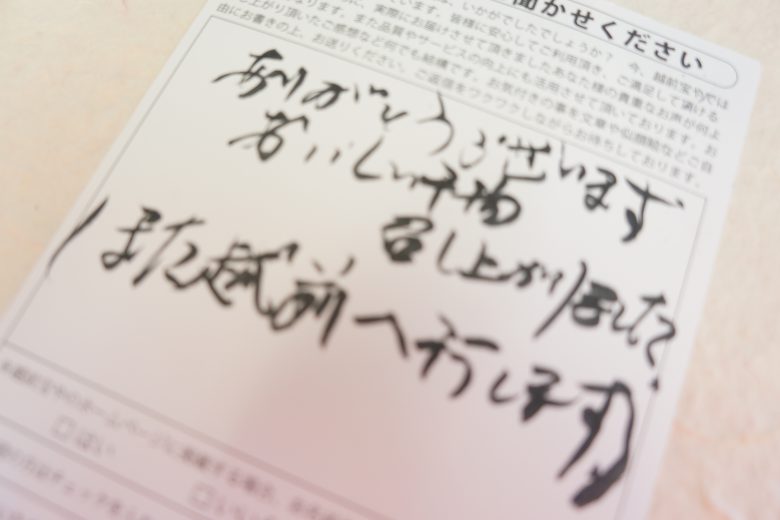 聞かせください
いかがでしたでしょうか？ 今、越前宝やでは
ています。皆様に安心してご利用頂き、ご満足して頂ける
に、実際にお届けさせて頂きましたあなた様の貴重なお声が何よ
なります。また品質やサービスの向上にも活用させて頂いております。お
し上がり頂いたご感想など何でも結構です。お気付きの事を文章や似顔絵などご自
由にお書きの上、お送りください。ご返信をワクワクしながらお待ちしております。
ありがとうございます
おいしい干物
召し上がりました、
また越前へ行します
のホームページに掲載する場合、
□はい